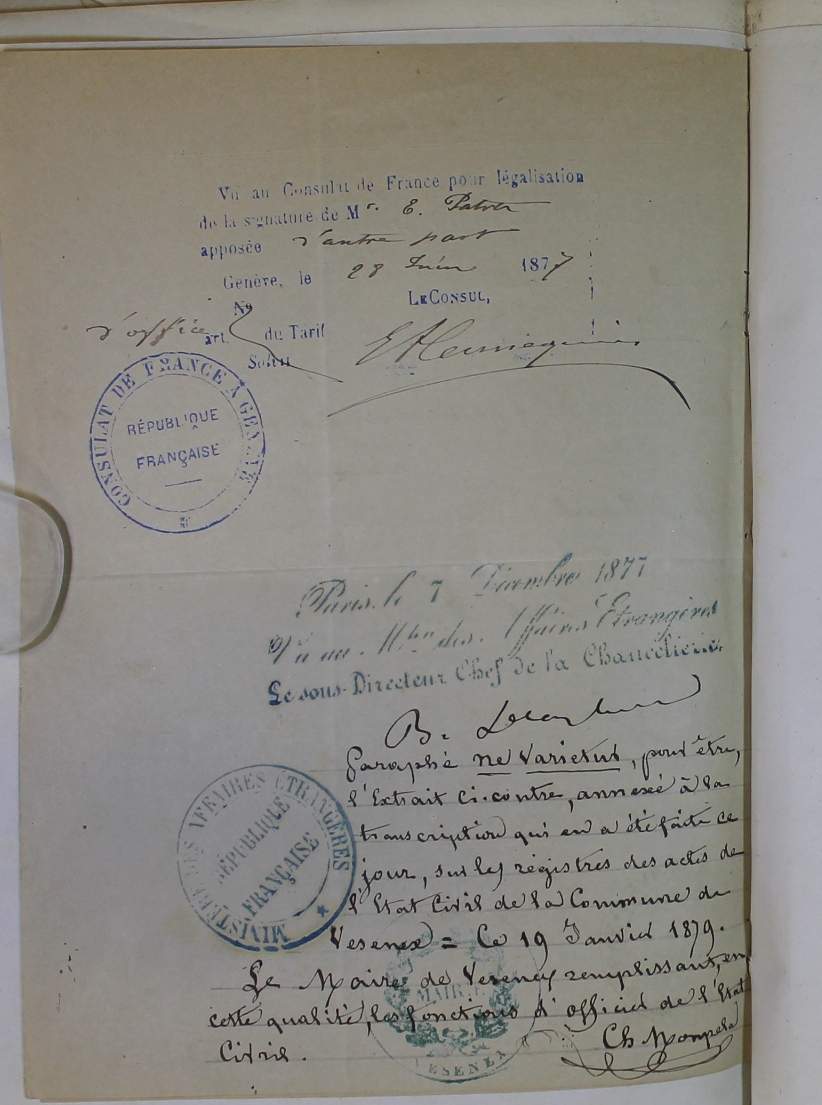 Vu au Consulat de France pour légalisation
de la signature de Mr. E. Patru
apposée d'autre part
Genève, le 28 Juin 1877
No LE CONSUL,
d'office art. du Tarif
Solu
CONSULAT DE FRANCE A GENÈVE
RÉPUBLIQUE
FRANÇAISE
Paris, le 7 Décembre 1877
Vu au Mtère des Affaires Etrangères
Le sous-Directeur Chef de la Chancellerie,
B.
Paraphé ne varietur, pour être,
l'Extrait ci-contre, annexé à la
transcription qui en a été faite ce
jour, sur les régistres des actes de
l'Etat Civil de la Commune de
Vesenex = Ce 19 Janvier 1879.
MINISTÈRE DES AFFAIRES ÉTRANGÈRES
RÉPUBLIQUE
FRANÇAISE
Le Maire de Vesenex remplissant, en
cette qualité, les fonctions d'officier de l'Etat
Civil.
Ch
MAIRIE
VESENEX